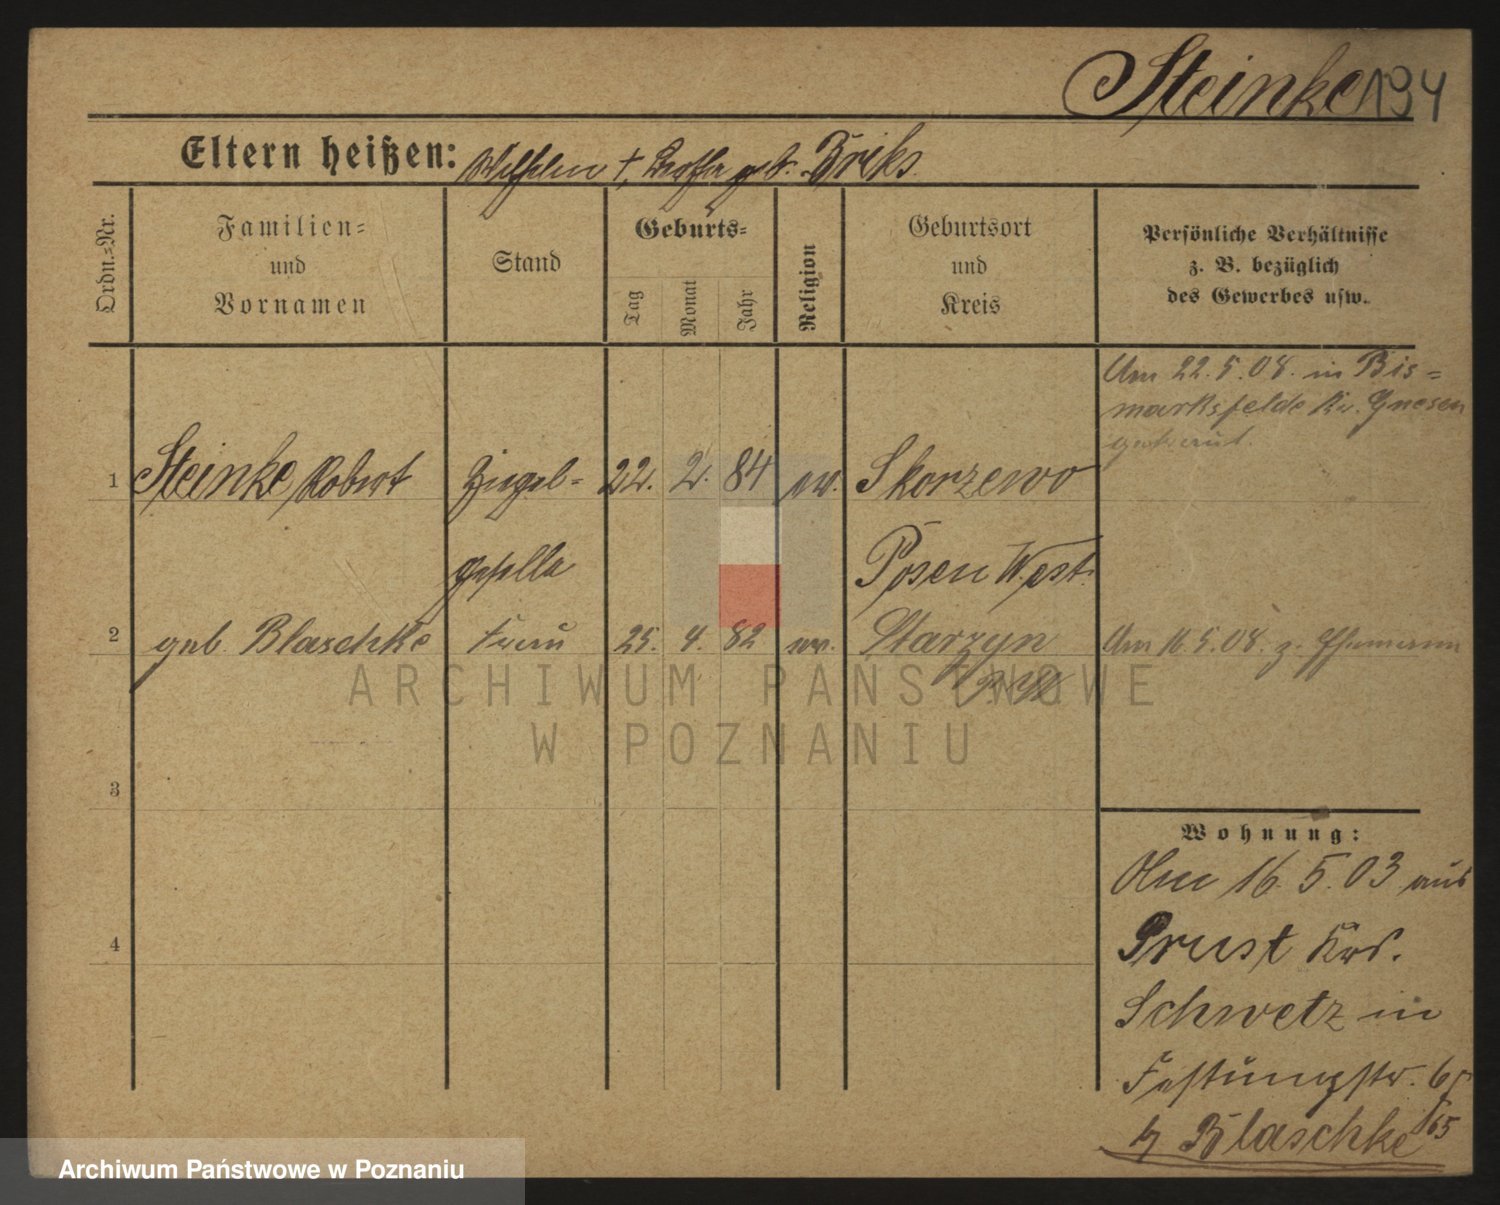 Steinke 194
Eltern heißen: Wilhelm †, geb. Briks.
Ordn.=Nr.
Familien=
und
Vornamen
Stand
Geburts=
Tag
Monat
Jahr
Religion
Geburtsort
und
Kreis
Persönliche Verhältnisse
z. B. bezüglich
des Gewerbes usw.
Am 22.5.08. in Bis=
marksfelde Kr. Gnesen
getraut.
1 Steinke Robert Ziegel= 22. 2. 84 ev. Skorzewo
geselle Posen West.
2 geb. Blaschke Frau 25. 4. 82 ev. Starzyn Am 16.5.08. z. Ehemann
P. W.
3
4
Wohnung:
Am 16.5.03 aus
Prust Krs.
Schwetz in
Festungstr. 65
b/ Blaschke 65
ARCHIWUM PAŃSTWOWE
W POZNANIU
Archiwum Państwowe w Poznaniu